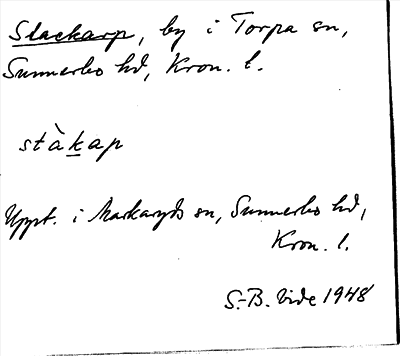 Slackarp, by i Torpa sn,
Sunnerbo hd, Kron. l.
stàkap
Uppt. i Markaryds sn, Sunnerbo hd,
Kron. l.
S.-B. Vide 1948